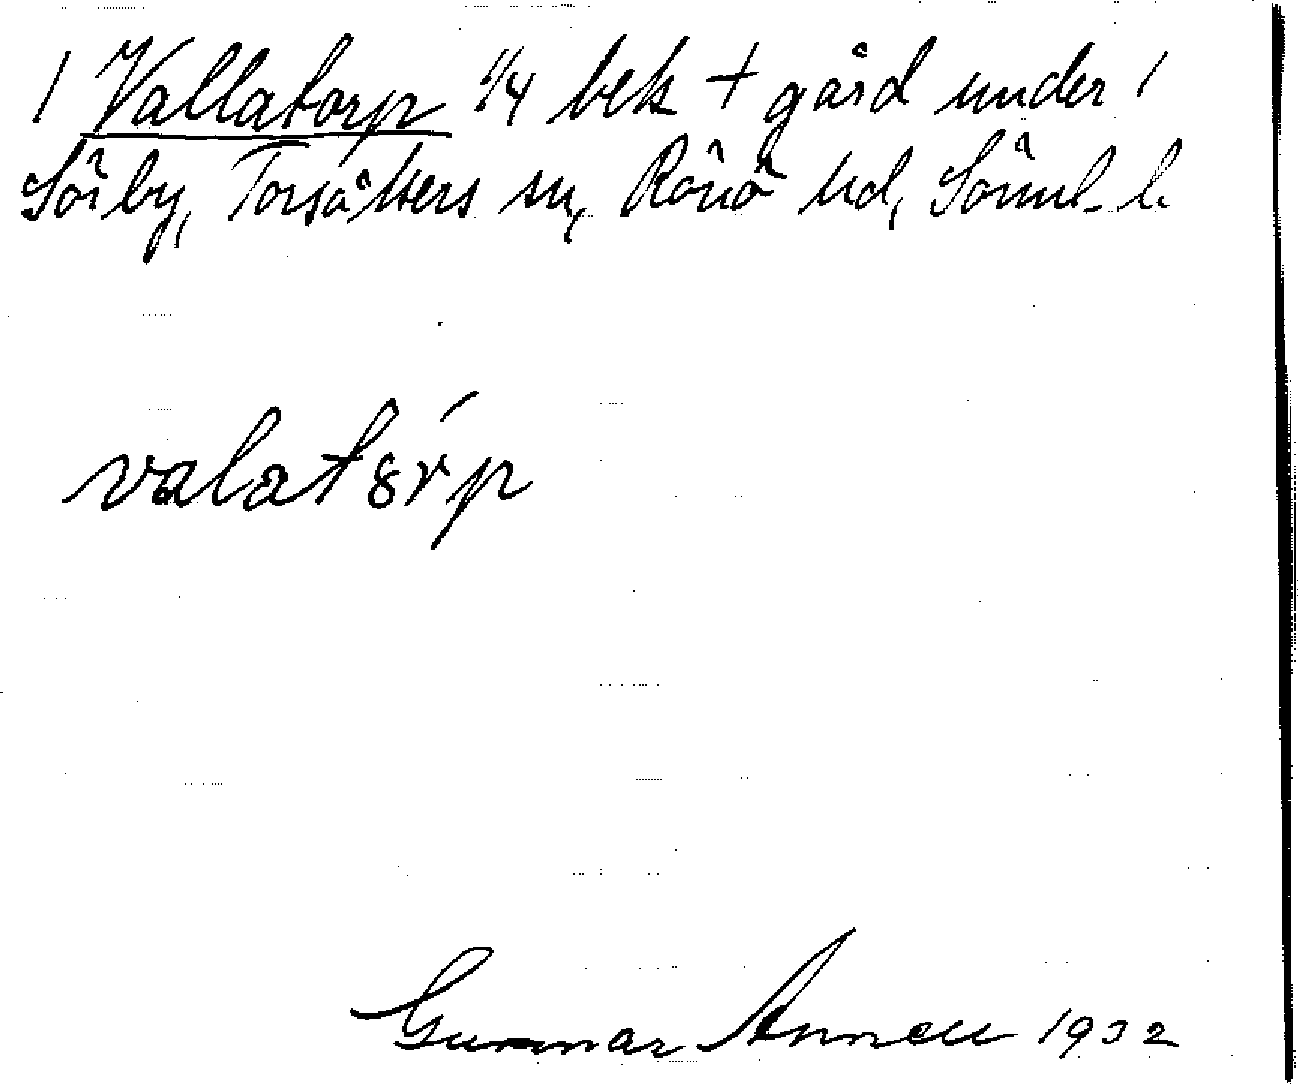 / Vallatorp 1/4 bek + gård under /
Sörby, Torsåkers sn, Rönö hd, Sörml. l.
valatörp
Gunnar Annell 1932